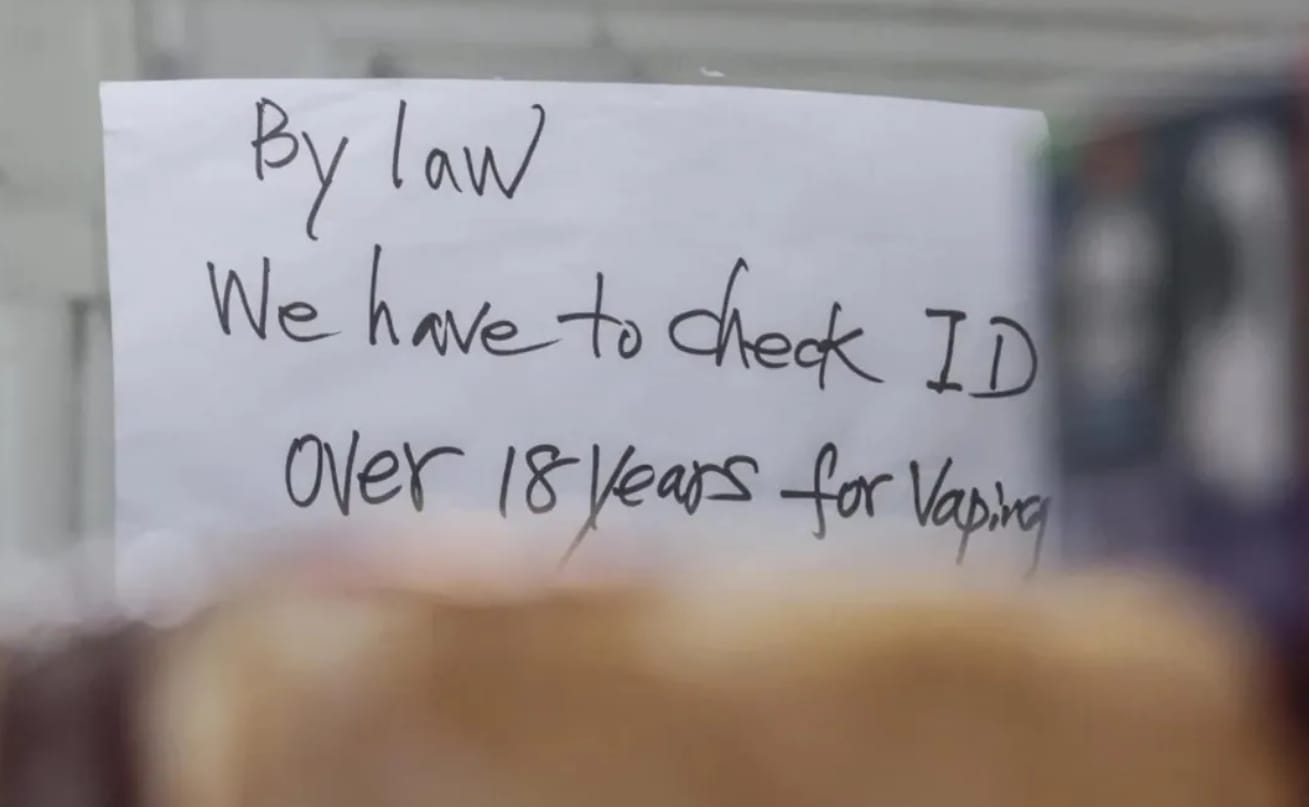 By law
We have to check ID
Over 18 years for Vaping